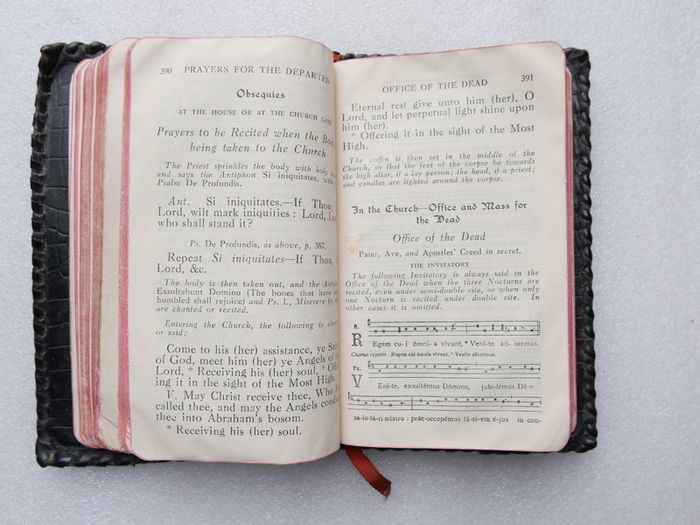 390 PRAYERS FOR THE DEPARTED
Obsequies
AT THE HOUSE OR AT THE CHURCH GATE
Prayers to be Recited when the Body
being taken to the Church
The Priest sprinkles the body with holy
and says the Antiphon Si iniquitates, with
Psalm De Profundis.
Ant. Si iniquitates.—If Thou,
Lord, wilt mark iniquities : Lord,
who shall stand it?
Ps. De Profundis, as above, p. 387.
Repeat Si iniquitates—If Thou,
Lord, &c.
The body is then taken out, and the
Exsultabunt Domino (The bones that have
humbled shall rejoice) and Ps. l., Miserere
are chanted or recited.
Entering the Church, the following is
or said:
Come to his (her) assistance, ye
of God, meet him (her) ye Angels of
Lord, * Receiving his (her) soul, *
ing it in the sight of the Most High.
V. May Christ receive thee, Who
called thee, and may the Angels
thee into Abraham's bosom.
* Receiving his (her) soul.
OFFICE OF THE DEAD 391
Eternal rest give unto him (her), O
Lord, and let perpetual light shine upon
him (her).
* Offering it in the sight of the Most
High.
The coffin is then set in the middle of the
Church, so that the feet of the corpse be towards
the high altar, if a lay person; the head, if a priest;
and candles are lighted around the corpse.
In the Church—Office and Mass for
the Dead
Office of the Dead
Pater, Ave, and Apostles' Creed in secret.
THE INVITATORY
The following Invitatory is always said in the
Office of the Dead when the three Nocturns are
recited, even under semi-double rite, or when only
one Nocturn is recited under double rite. In
other cases it is omitted.
6.
R Egem cu-i ómni-a vivunt, * Vení-te ad- oremus.
Chorus repetit : Regem cui ómnia vivunt, * Veníte adorémus.
Ps.
V Ení-te, exsultémus Dómino, jubi-lémus Dé-o
sa-lu-tá-ri nóstro : præ-occupémus fá-ci-em é-jus in con-